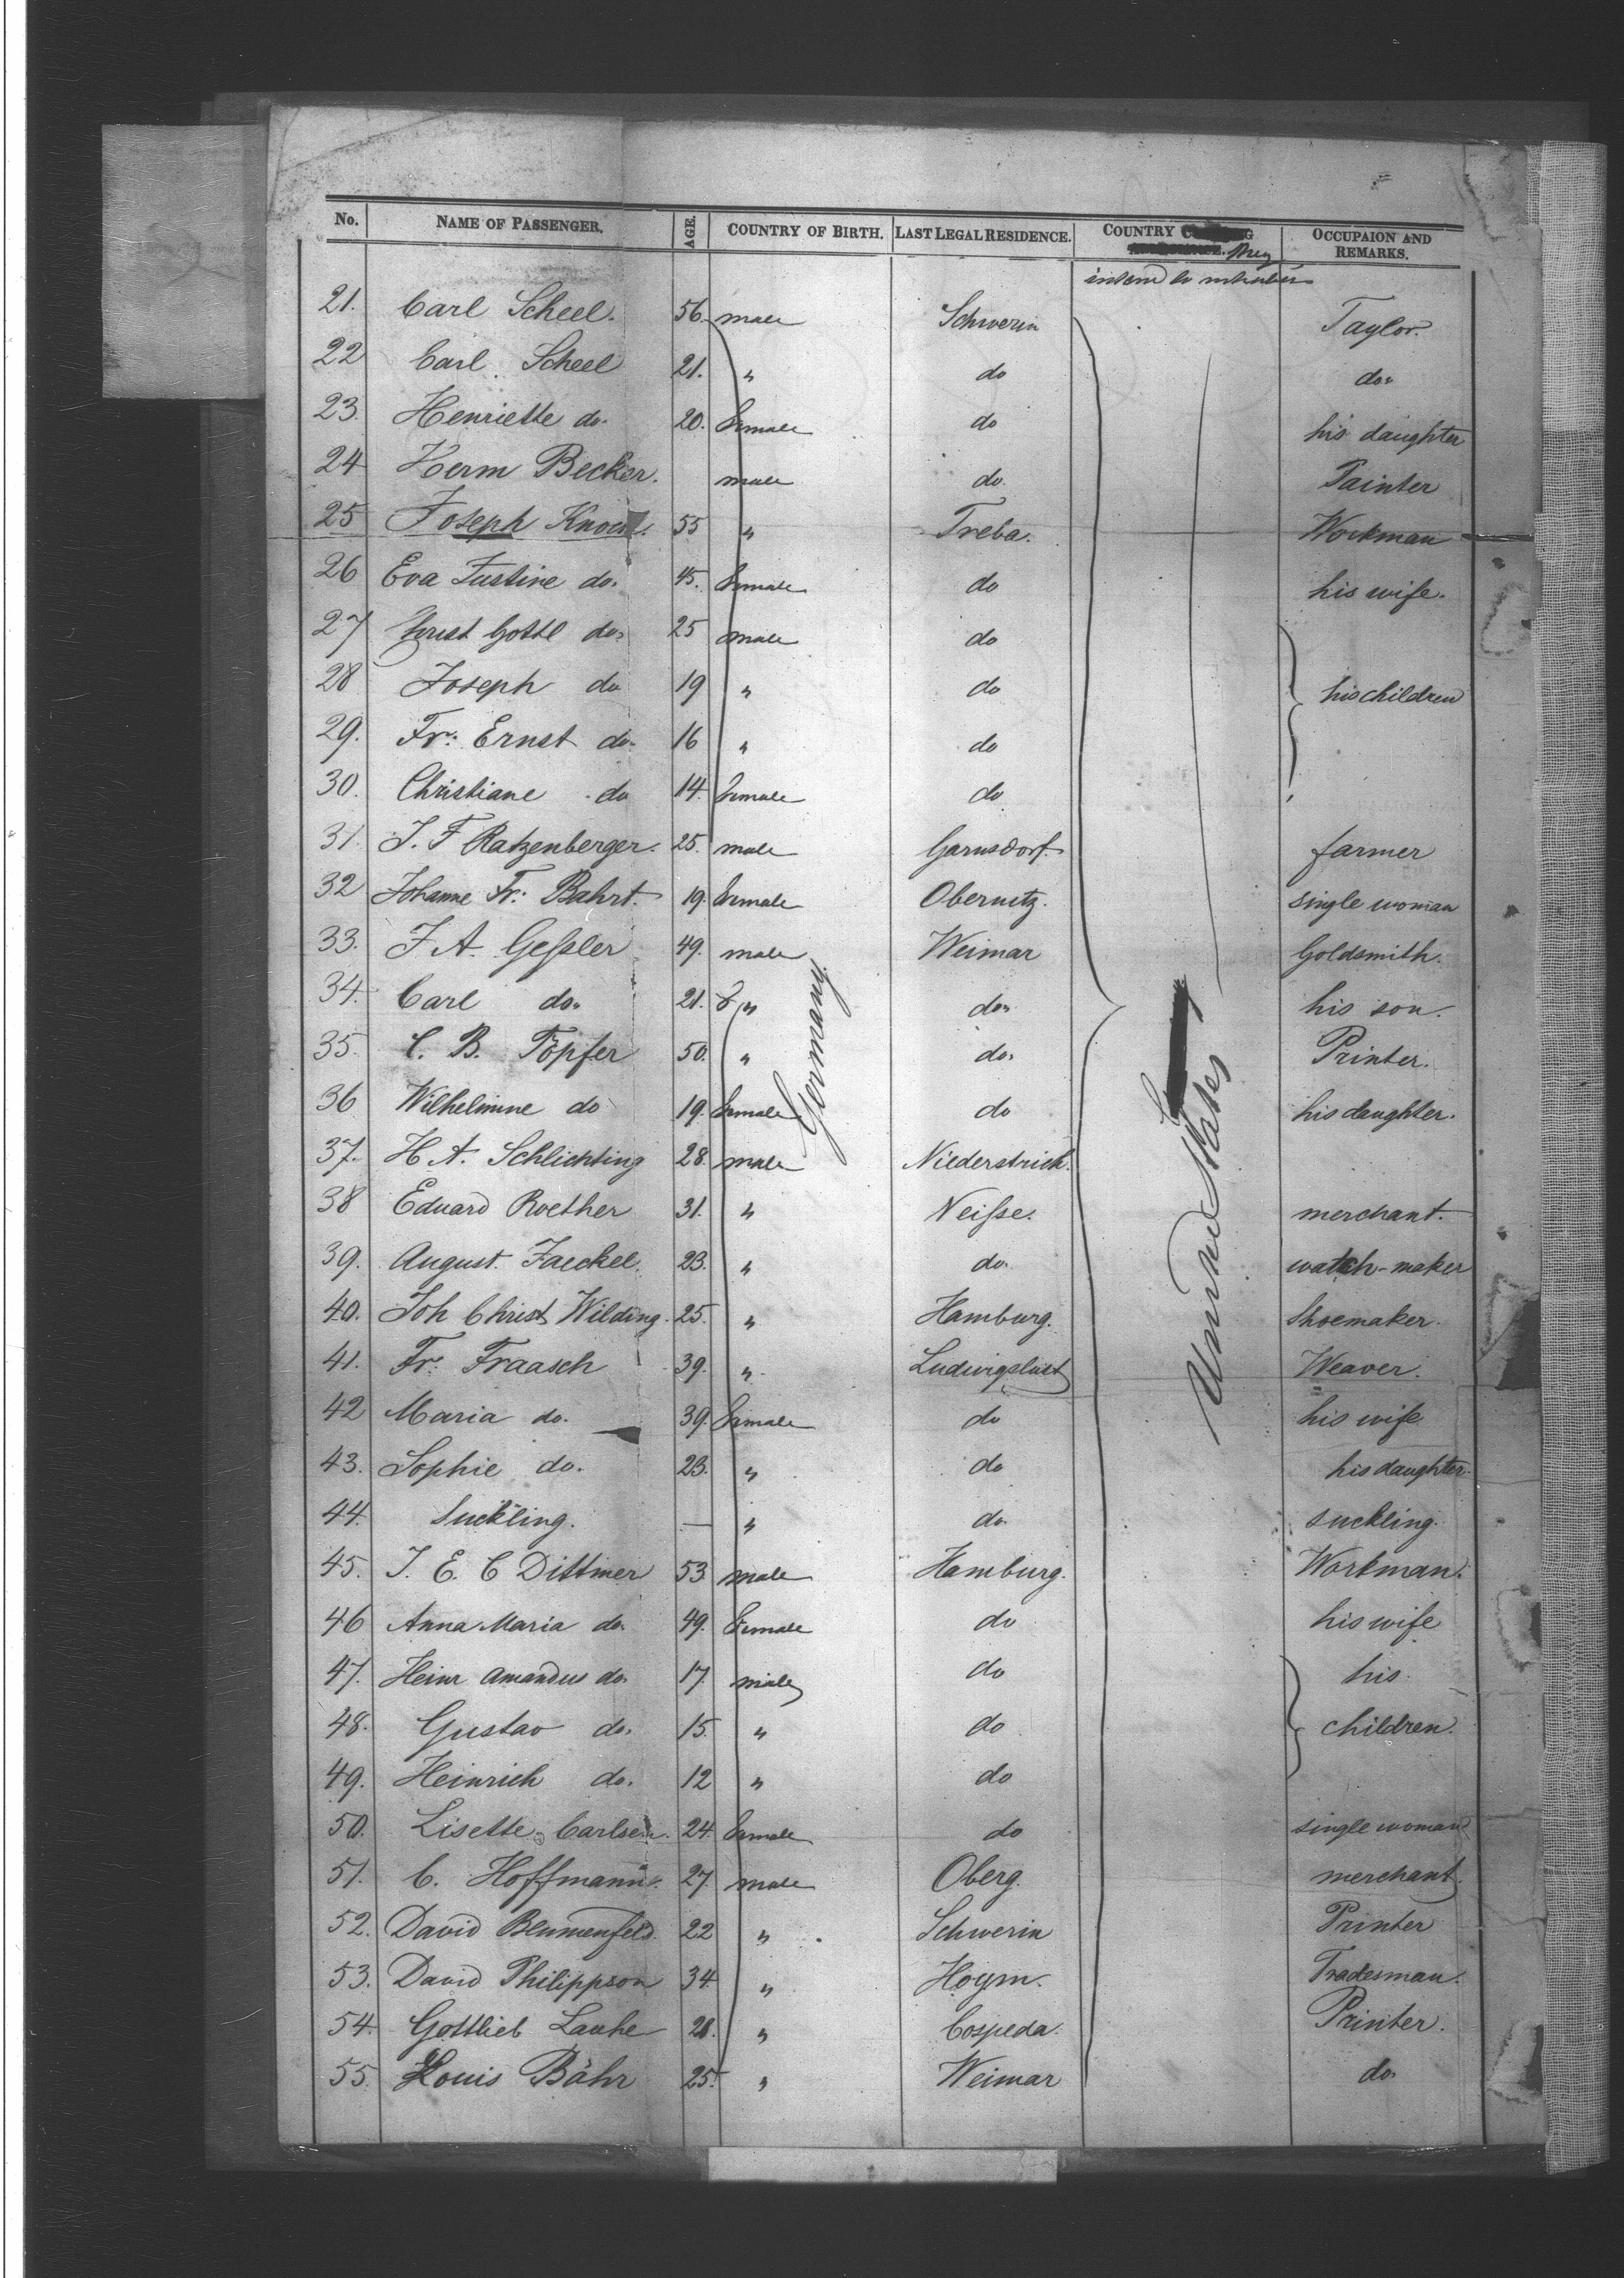 No. NAME OF PASSENGER. AGE. COUNTRY OF BIRTH. LAST LEGAL RESIDENCE. COUNTRY they OCCUPAION AND REMARKS.
intend to
21. Carl Scheel. 56. male Schwerin Taylor.
22 Carl Scheel 21. " do do.
23. Henriette do. 20. female do his daughter
24 Herm Becker. male do. Painter
25 Joseph 55 " Treba. Workman
26 Eva Justine do. 45. female do his wife.
27 Christ Gottl do. 25 male do
28 Joseph do 19 " do his children
29. Fr. Ernst do. 16 " do
30. Christiane do 14. female do
31. J. F Ratzenberger. 25. male Garnsdorf. farmer
32 Johanne Fr. Bahrt. 19. female Obernitz. single woman
33. J A. Geßler 49. male Weimar Goldsmith.
34. Carl do. 21. " do. his son.
35. C. B. Töpfer 50. " do. Printer.
36 Wilhelmine do 19. female do his daughter.
37. H A. Schlichting 28. male Niederstrich.
38 Eduard Roether 31. " Neiße. merchant.
39. August Jaeckel 23. " do. watch-maker
40. Joh Christ Wilding. 25. " Hamburg. Shoemaker.
41. Fr. Fraasch 39. " Ludwigslust Weaver.
42 Maria do. 39. female do his wife
43. Sophie do. 23. " do his daughter.
44. Suckling. — " do. suckling.
45. J. E. C Dittmer 53 male Hamburg. Workman.
46 Anna Maria do. 49. female do his wife
47. Heinr Amandus do. 17. male do his
48. Gustav do. 15. " do children.
49. Heinrich do. 12 " do
50. Lisette Carlsen. 24. female do single woman
51. C. Hoffmann. 27. male Oberg. merchant.
52. David Blumenfeld. 22 " Schwerin Printer
53. David Philippson 34 " Hoym. Tradesman.
54. Gottlieb Lauhe 28. " Cospeda. Printer.
55. Louis Bähr 25. " Weimar do.
Germany.
United States